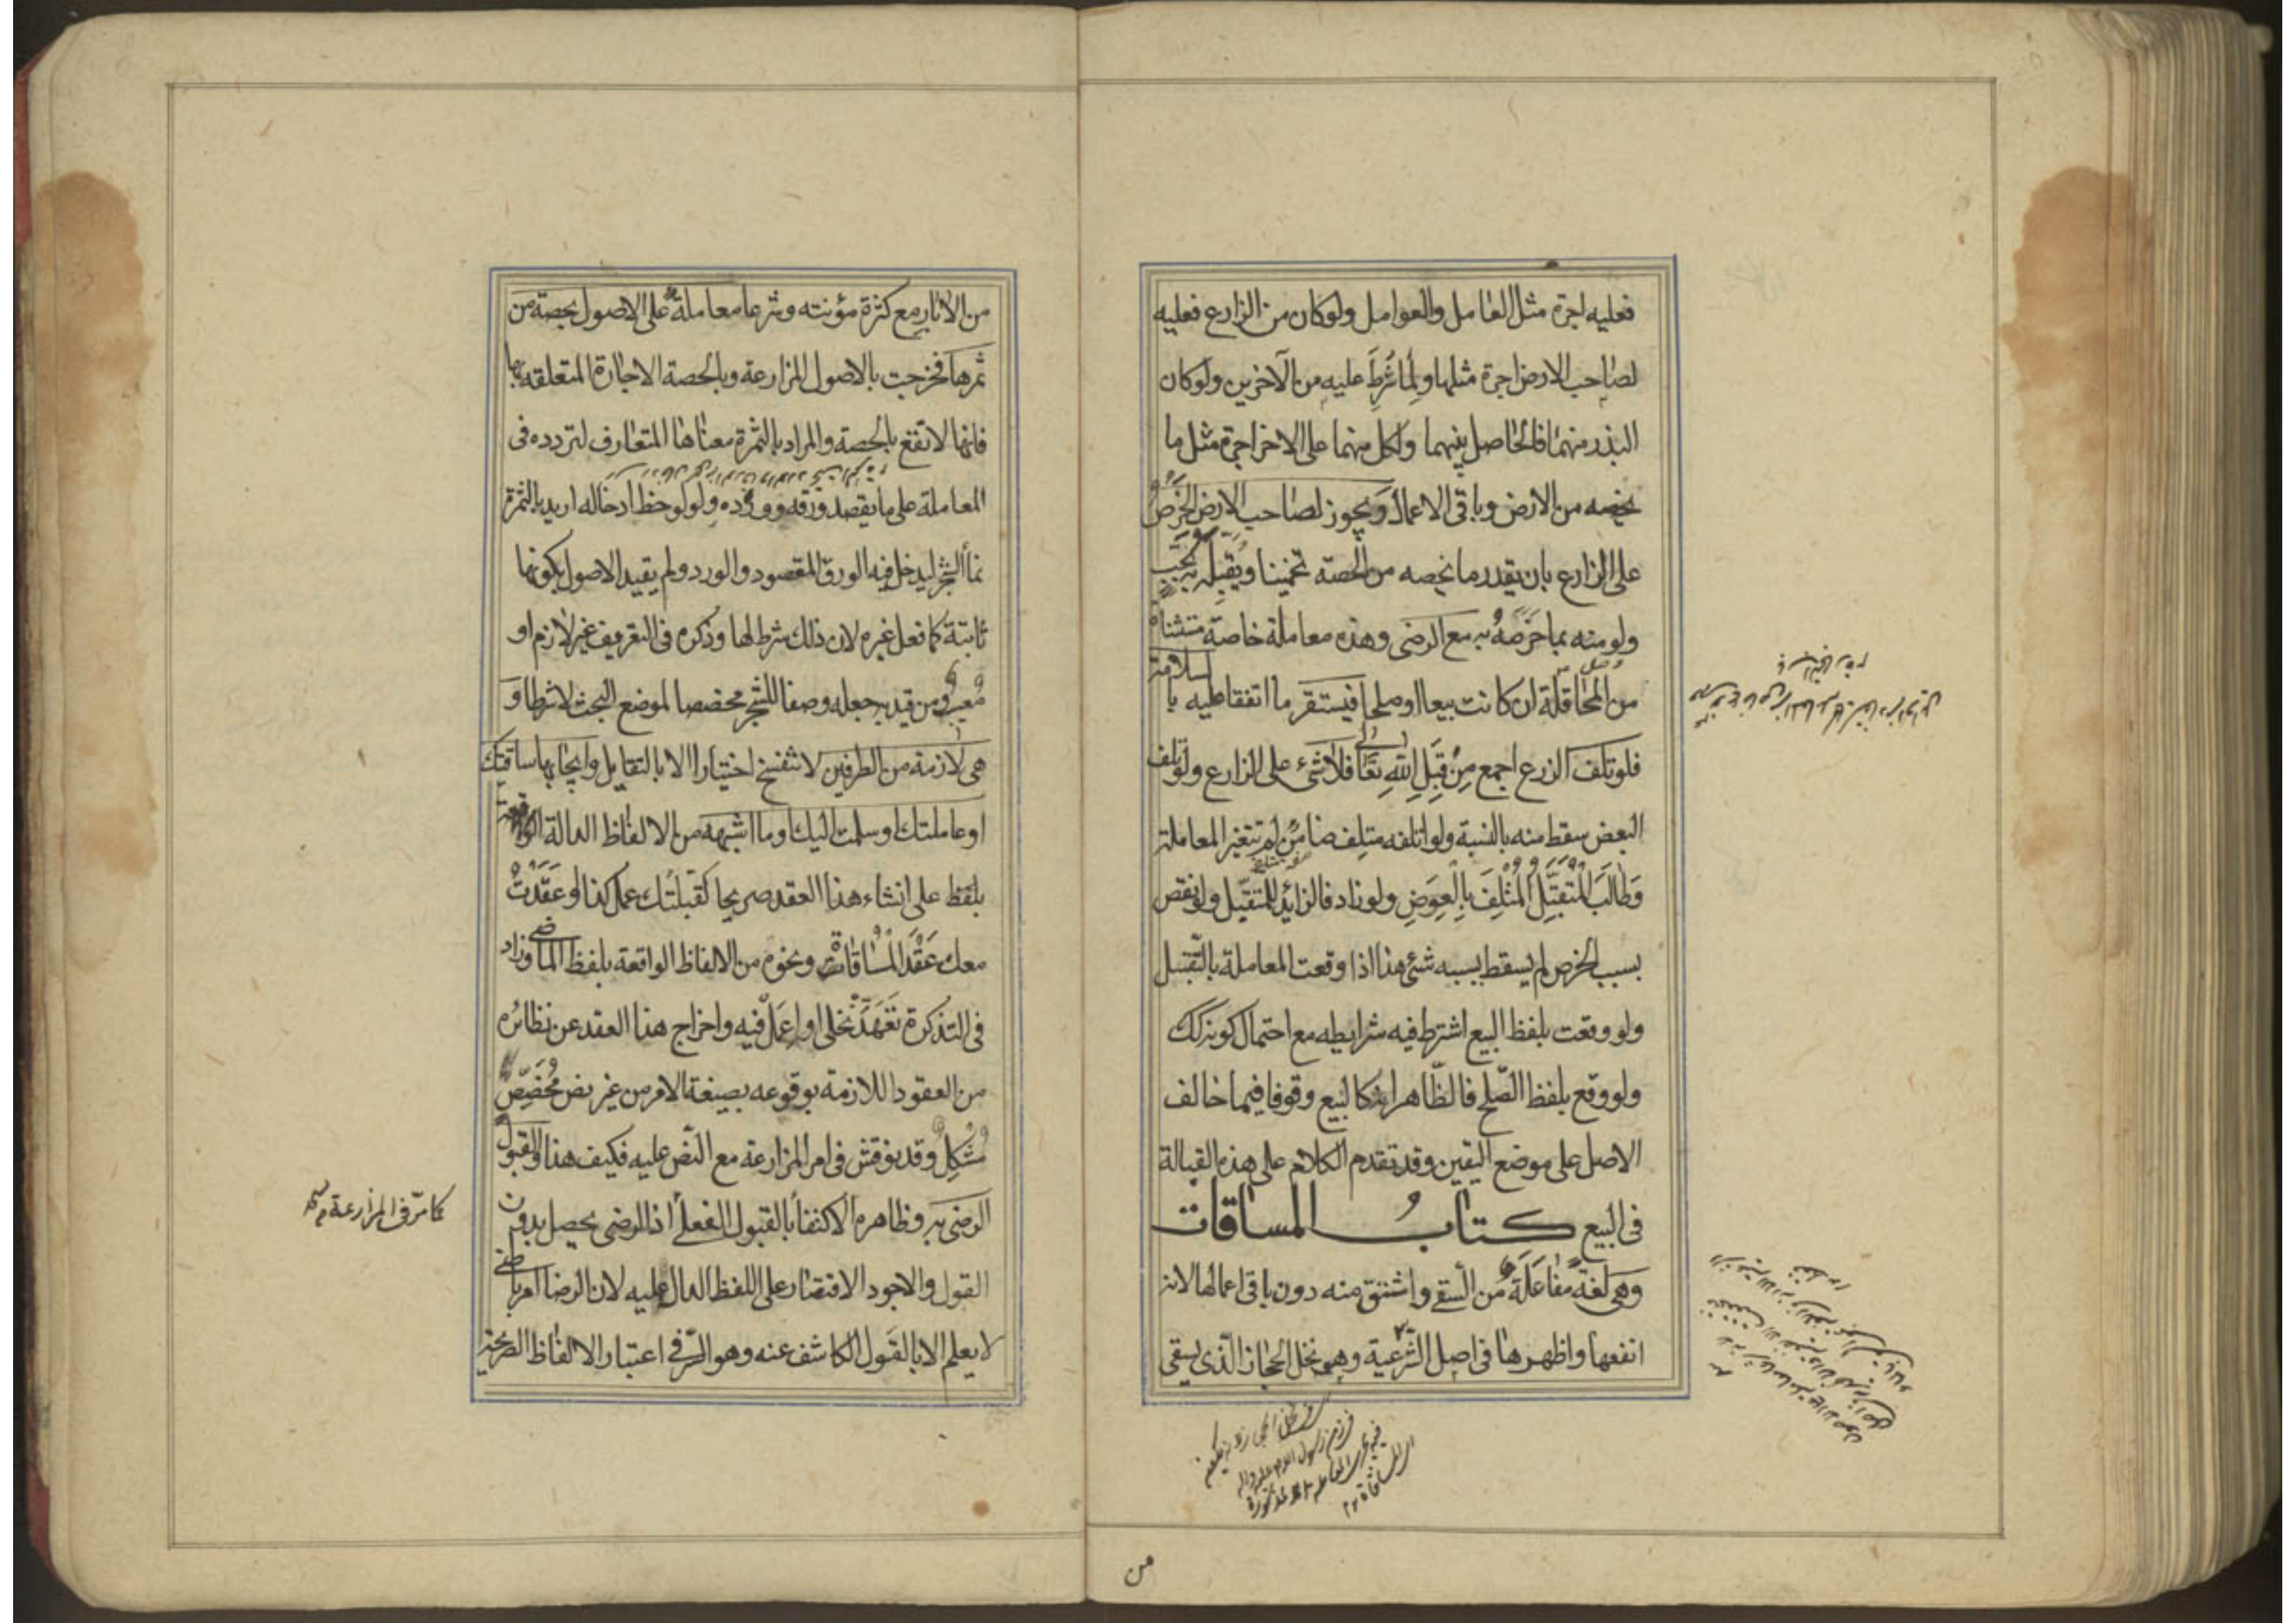 فعليه اجرة مثل العامل والعوامل ولو كان من الزارع فعليه
لصاحب الارض اجرة مثلها ولما شرط عليه من الآخرين ولو كان
البذر منهما فالحاصل بينهما ولكل منهما على الاخر اجرة مثل ما
يخصه من الارض وباقى الاعمال ويجوز لصاحب الارض الخرص
على الزارع بان يقدر ما يخصه من الحصة تخمينا ويقبله به بحب
ولو منه بما خرصه به مع الرضى وهذه معاملة خاصة مستثناة
من المحاقلة ان كانت بيعا او صلحا فيستقر ما اتفقا عليه بالسلامة
فلو تلف الزرع اجمع من قبل الله تعالى فلا شئ على الزارع ولو تلف
البعض سقط منه بالنسبة ولو اتلفه متلف ضامن لم تتغير المعاملة
وطالب المتقبل المتلف بالعوض ولو زاد فالزائد للمتقبل ولو نقص
بسبب الخرص لم يسقط بسببه شئ هذا اذا وقعت المعاملة بالتقبيل
ولو وقعت بلفظ البيع اشترط فيه شرايطه مع احتمال كونه كك
ولو وقع بلفظ الصلح فالظاهر انه كالبيع وقوفا فيما خالف
الاصل على موضع اليقين وقد تقدم الكلام على هذه القبالة
فى البيع كتاب المساقات
وهى لغة مفاعلة من السقى واشتق منه دون باقى اعمالها لانه
انفعها واظهرها فى اصل الشرعية وهو نخل الحجاز الذى يسقى
من
من الابار مع كثرة مؤنته وشرعا معاملة على الاصول بحصة من
ثمرها فخرجت بالاصول المزارعة وبالحصة الاجارة المتعلقه بها
فانها لا تقع بالحصة والمراد بالثمرة معناها المتعارف لتردده فى
المعاملة على ما يقصد ورقه وورده ولو لوحظ ادخاله اريد بالثمرة
نماء الشجر ليدخل فيه الورق المقصود والورد ولم يقيد الاصول بكونها
ثابتة كما فعل غيره لان ذلك شرط لها وذكره فى التعريف غير لازم او
معيب ومن قيد به جعله وصفا للشجر مخصصا لموضع البحث لا شرطا و
هى لازمة من الطرفين لا تنفسخ اختيارا الا بالتقايل وايجابها ساقيتك
او عاملتك او سلمت اليك وما اشبهه من الالفاظ الدالة
بلفظ على انشاء هذا العقد صريحا كقبلتك عمل كذا او عقدت
معك عقد المساقات ونحوه من الالفاظ الواقعة بلفظ الماضى وزاد
فى التذكرة تعهد نخلى او اعمل فيه واخراج هذا العقد عن نظائره
من العقود اللازمة بوقوعه بصيغة الامر من غير نص مخصص
مشكل وقد نوقش فى امر المزارعة مع النص عليه فكيف هذا والقبول
الرضى به وظاهره الاكتفاء بالقبول الفعلى اذ الرضى يحصل بدون
القول والاجود الاقتصار على اللفظ الدال عليه لان الرضا امر باطنى
لا يعلم الا بالقول الكاشف عنه وهو السر فى اعتبار الالفاظ الصريحة
كما مر فى المزارعة